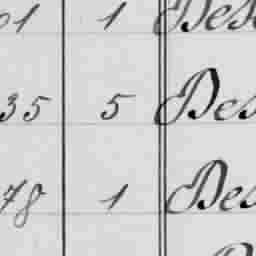 01 1 Des
35 5 Des
78 1 Des